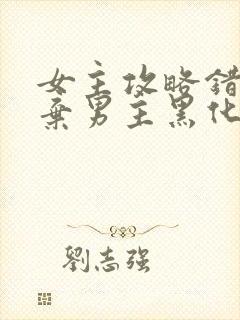 女主攻略错
弃男主黑化
劉志强